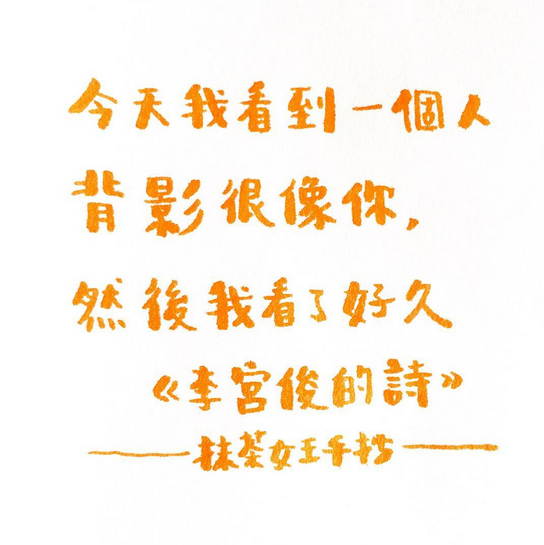 今天我看到一個人
背影很像你,
然後我看了好久
《李宮俊的詩》
抹茶女王手抄